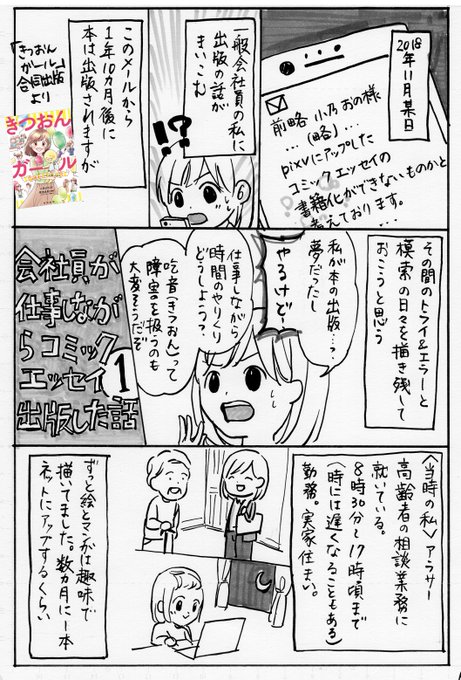 2018
年11月某日
前略 小乃おの様
…(略)…
pixvにアップした
コミックエッセイの
書籍化ができないものかと
考えております。
…
一般会社員の私に
出版の話が
まいこむ
!?
このメールから
1年10カ月後に
本は出版されますが
「きつおん
ガール」
合同出版
より
きつおん
ガール
その間のトライ&エラーと
模索の日々を描き残して
おこうと思う
私が本の出版…?
夢だったし
やるけど!
仕事しながら
時間のやりくり
どうしよう?
吃音(きつおん)って
障害を扱うのも
大変そうだぞ
会社員が
仕事しなが
らコミック
エッセイ
出版した話
1
〈当時の私〉アラサー
高齢者の相談業務に
就いている。
8時30分〜17時頃まで
(時には遅くなることもある)
勤務。実家住まい。
ずっと絵とマンガは趣味で
描いてました。数カ月に一本
ネットにアップするくらい